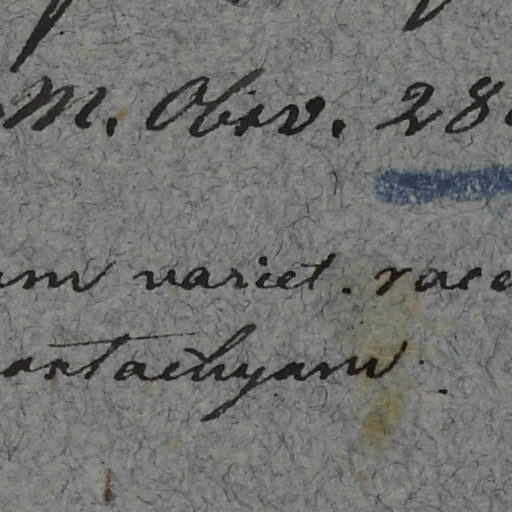 M. Obsv. 28
um variet. race
artachyam.